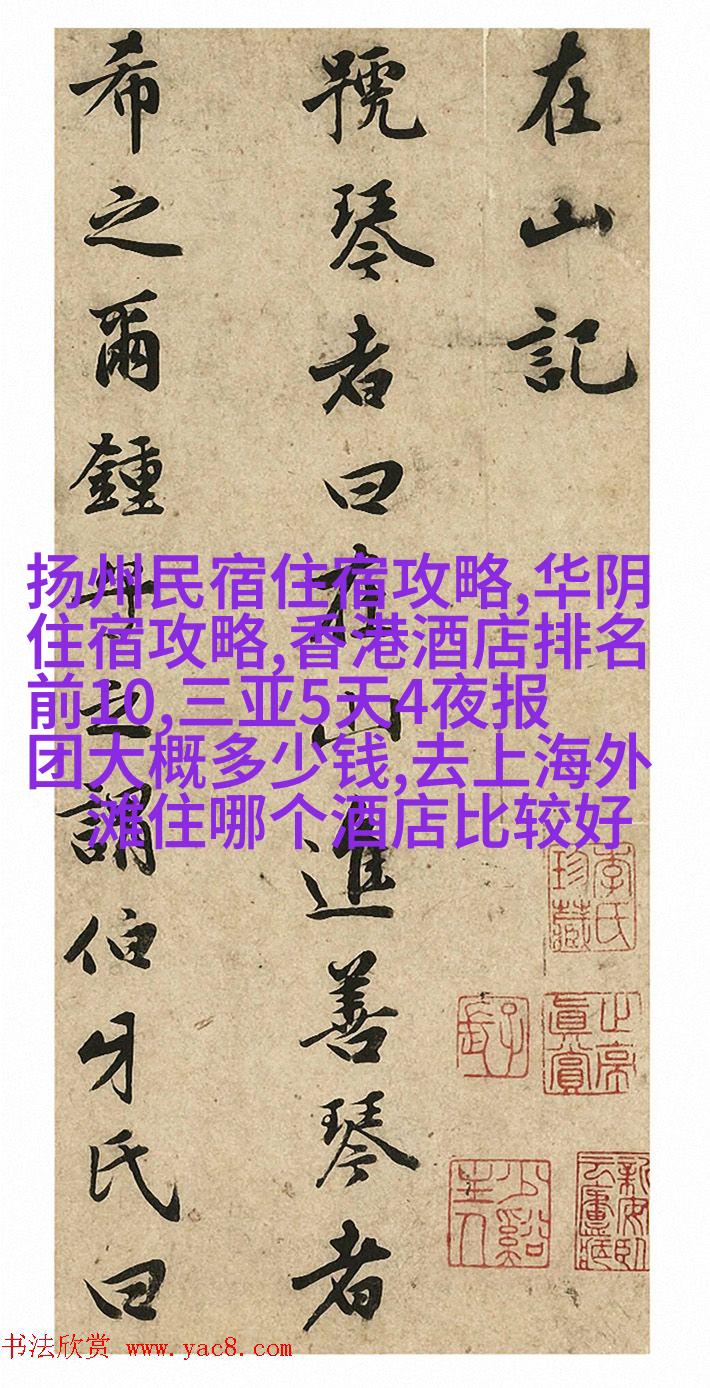 在山記
號琴者曰在山進善琴者
希之爾鍾
謂伯牙氏曰
扬州民宿住宿攻略,华阴
住宿攻略,香港酒店排名
前10,三亚5天4夜报
团大概多少钱,去上海外
滩住哪个酒店比较好
李氏
珍藏
真賞
少谿
主人
书法欣赏 www.yac8.com